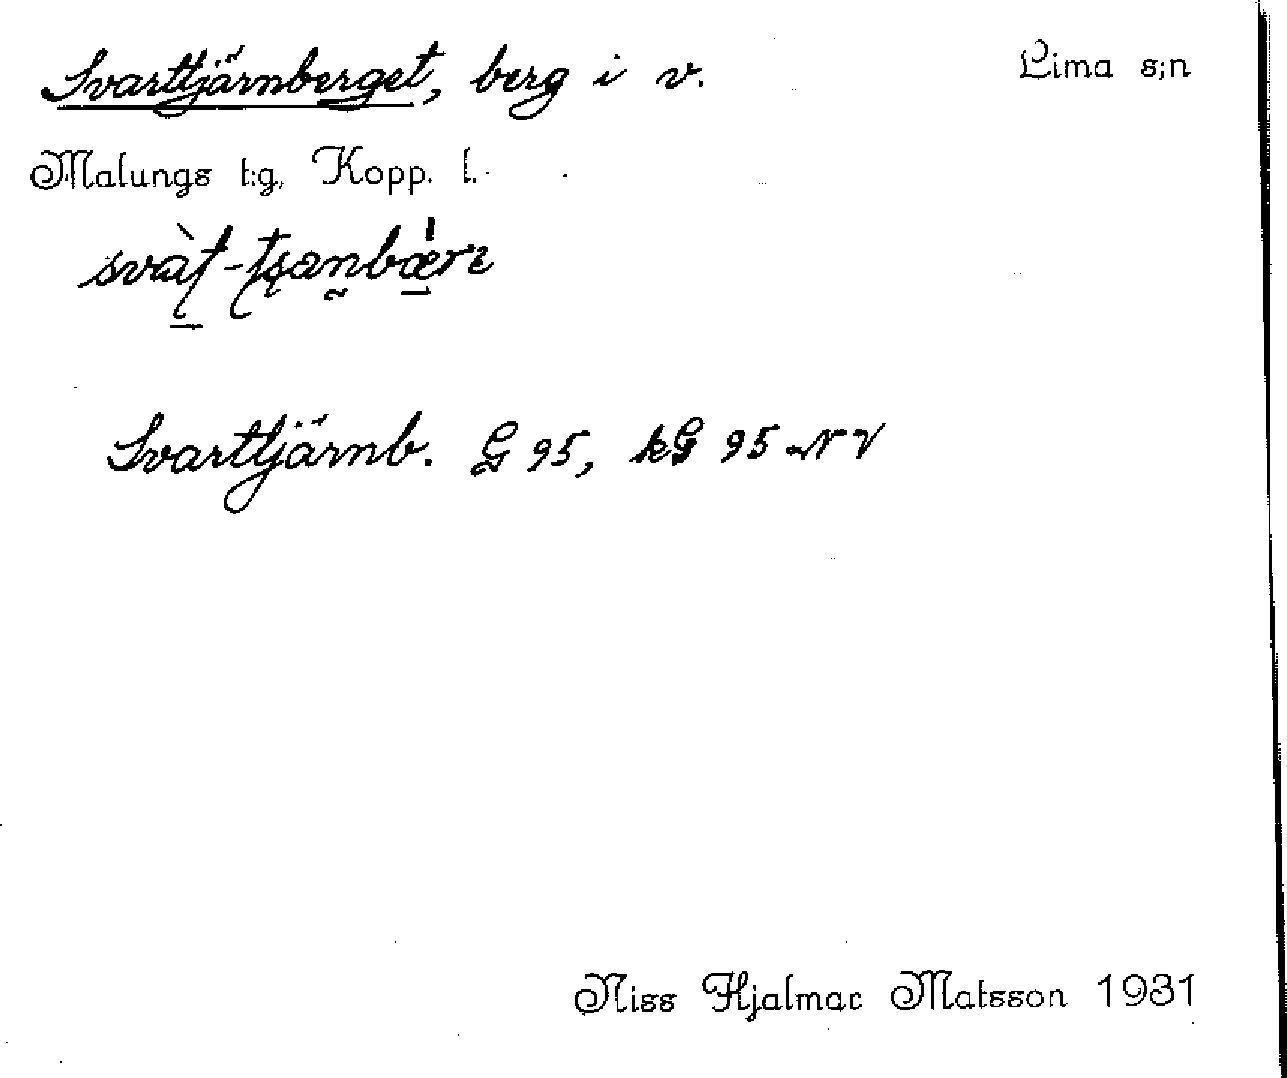 Svarttjärnberget, berg i v. Lima s;n
Malungs t:g, Kopp. l.
Svarttjärnb. G 95, kG 95 NV
Niss Hjalmar Matsson 1931